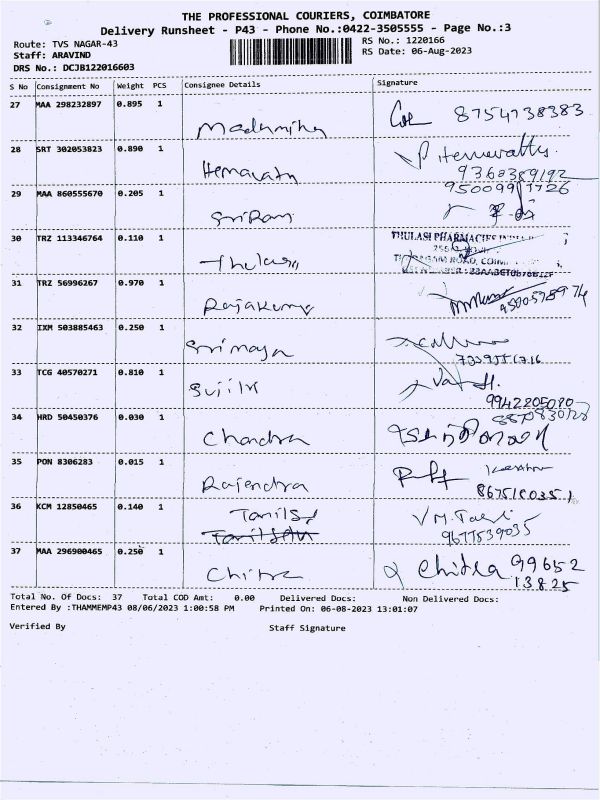 THE PROFESSIONAL COURIERS, COIMBATORE
Delivery Runsheet - P43 - Phone No.:0422-3505555 - Page No.:3
Route: TVS NAGAR-43
RS No.: 1220166
Staff: ARAVIND
RS Date: 06-Aug-2023
DRS No.: DCJB122016603
S No Consignment No Weight PCS Consignee Details Signature
27 MAA 298232897 0.895 1 Madhumitha 8754738383
28 SRT 302053823 0.890 1 Hemavathi P. Hemavathy
9360389192
29 MAA 860555670 0.205 1 SriRam
30 TRZ 113346764 0.110 1 Thulasi THULASI PHARMACIES
31 TRZ 56996267 0.970 1 Rajakumar
32 IXM 503885463 0.250 1 Srimaya
33 TCG 40570271 0.810 1
9942205080
34 HRD 50450376 0.030 1 Chandra
35 PON 8306283 0.015 1 Rajendra
36 KCM 12850465 0.140 1 Tamils
9677539035
37 MAA 296900465 0.250 1 Chitra Chitra 99652
13825
Total No. Of Docs: 37 Total COD Amt: 0.00 Delivered Docs: Non Delivered Docs:
Entered By :THAMMEMP43 08/06/2023 1:00:58 PM Printed On: 06-08-2023 13:01:07
Verified By Staff Signature